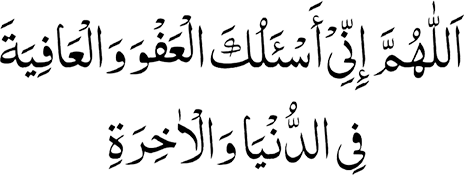 اَللّٰهُمَّ إِنِّيْ أَسْئَلُكَ الْعَفْوَ وَالْعَافِيَةَ
فِي الدُّنْيَا وَالْاٰخِرَةِ